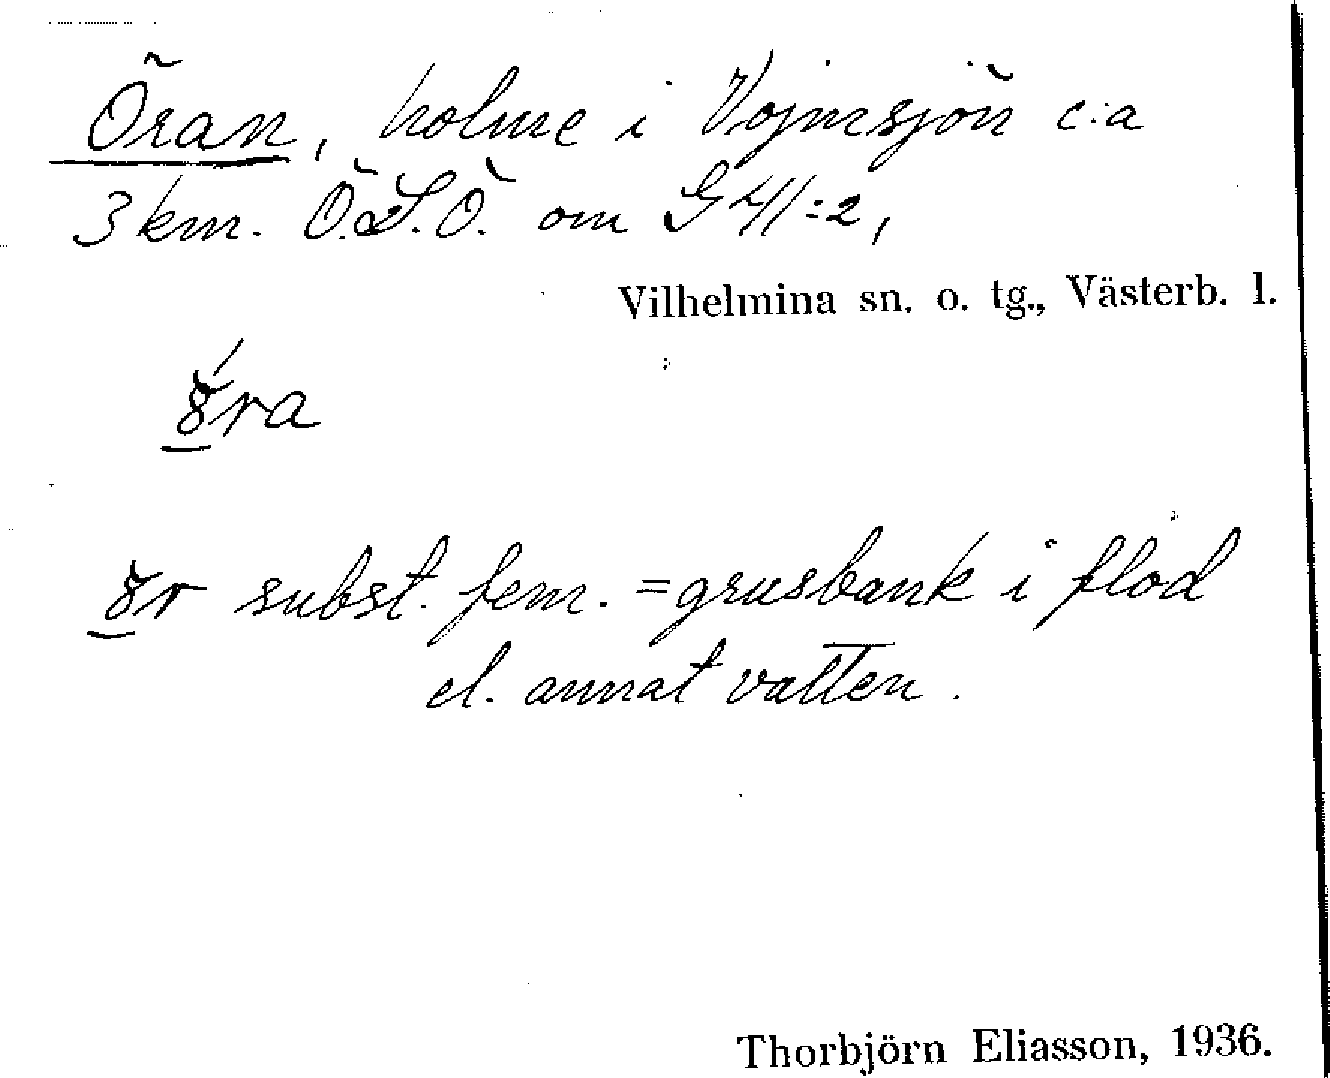 Öran, holme i Vojmsjön c:a
3 km. Ö.S.Ö. om G 41:2,
Vilhelmina sn. o. tg., Västerb. l.
ra
subst. fem. = grusbank i flod
el. annat vatten.
Thorbjörn Eliasson, 1936.